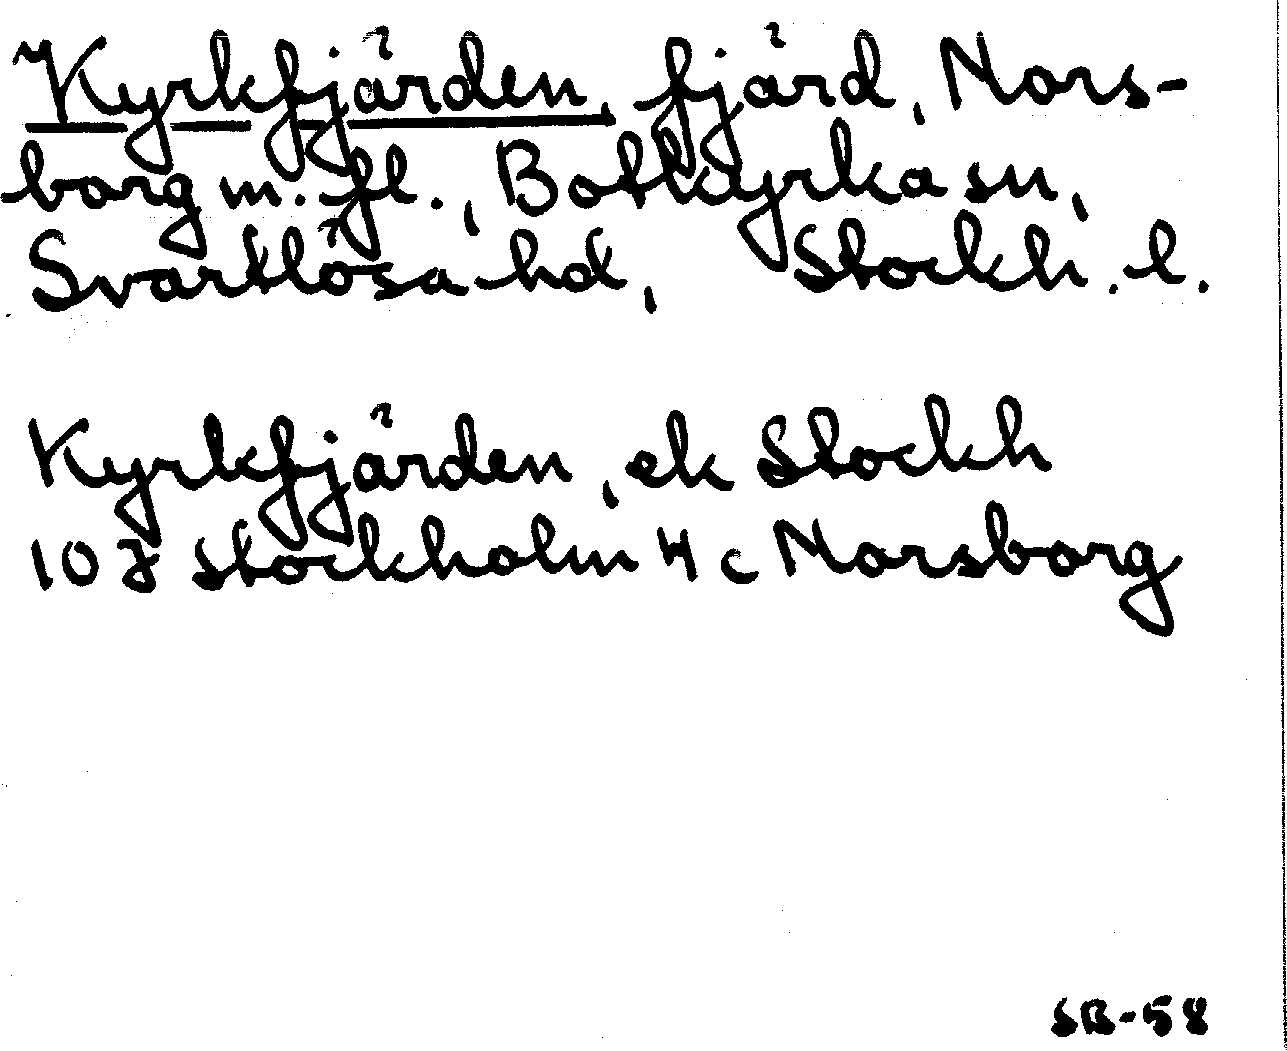 Kyrkfjärden, fjärd, Nors-
borg m. fl., Botkyrka sn,
Svartlösa hd, Stockh. l.
Kyrkfjärden, ek Stockh
10 J Stockholm 4 c Norsborg
SB-58